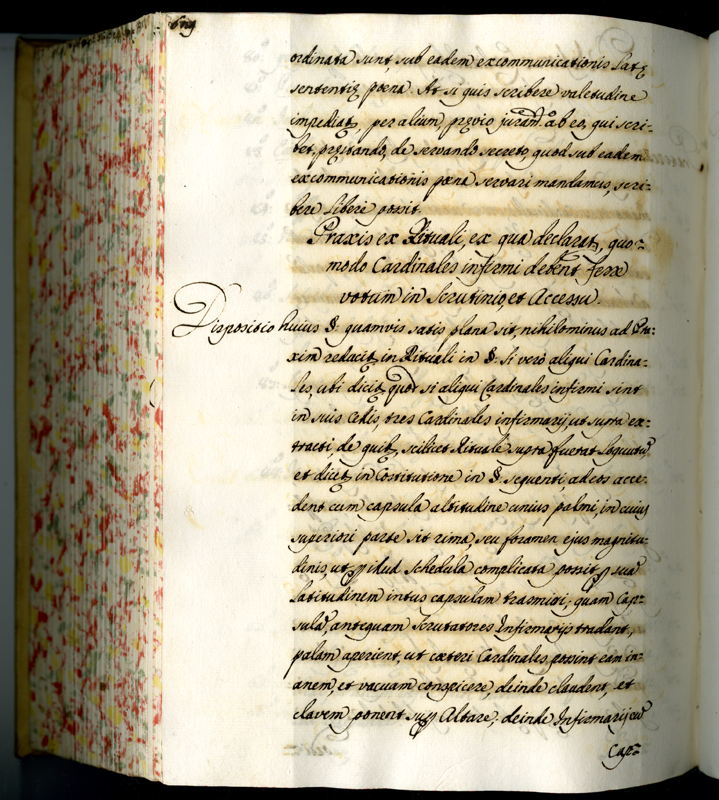 ordinata sunt, sub eadem excommunicationis latę
sententię poena. At si quis scribere valetudine
impediat, per alium, pręvio juram. ab eo, qui scri-
bet, pręstando, de servando secreto, quod sub eadem
excommunicationis poena servari mandamus, scri-
bere libere possit.
Praxis ex Rituali, ex qua declarat, quo-
modo Cardinales infirmi debent ferre
votum in Scrutinio, et Accessu.
Dispositio huius §. quamvis satis plana sit, nihilominus ad Pra-
xim redacit in Rituali in §. Si verò aliqui Cardina-
les, ubi dicit, quod si aliqui Cardinales infirmi sint
in suis Cellis, tres Cardinales infirmarij, ut supra ex-
tracti, de quib, scilicet Rituale supra fuerat loquutu,
et dicit in Costitutione in §. sequenti, ad eos acce-
dent cum capsula altitudine unius palmi, in cuius
superiori parte sit rima, seu foramen ejus magnitu-
dinis, ut p illud schedula complicata possit p sua
latitudinem intus capsulam trasmiti; quam Cap-
sula, antequam Scrutatores Infirmarijs tradant,
palam aperient, ut cæteri Cardinales possint eam in-
anem, et vacuam conspicere, deinde claudent, et
clavem ponent sup Altare, deinde Infirmarij cu
Cap-